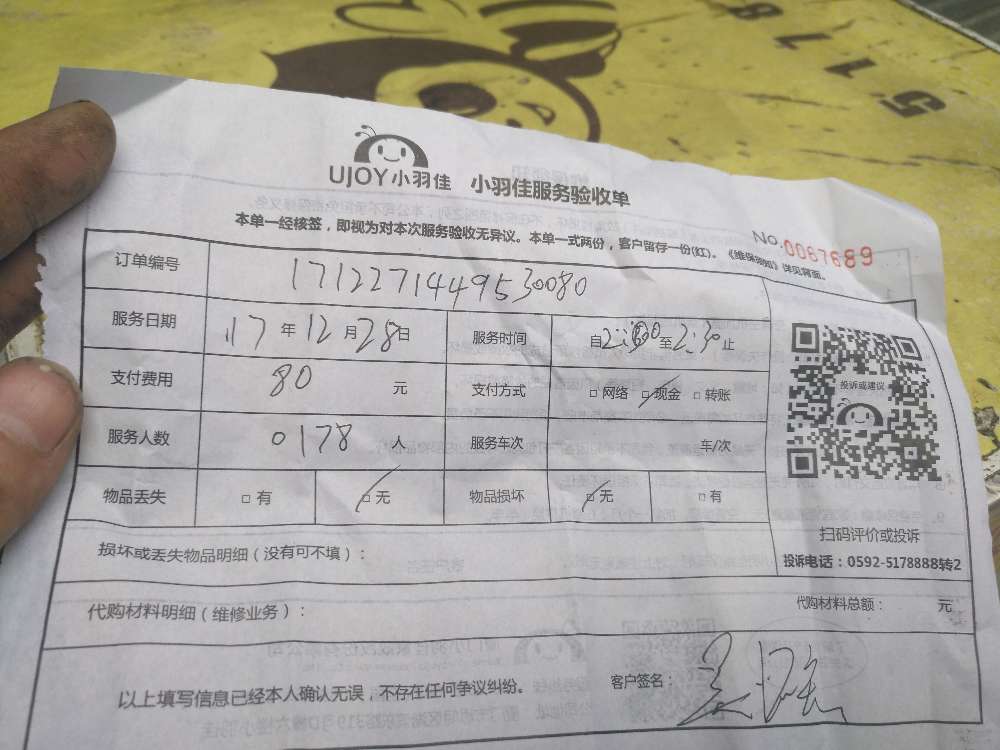 5178
UJOY小羽佳 小羽佳服务验收单
本单一经核签，即视为对本次服务验收无异议。本单一式两份，客户留存一份(红)。《维保须知》详见背面。
No.0067689
订单编号 1712271449530080
服务日期 17年12月28日 服务时间 自2:00至2:30止
支付费用 80 元 支付方式 □网络 □现金 □转账
服务人数 0178 人 服务车次 车/次
物品丢失 □有 □无 物品损坏 □无 □有
投诉或建议
扫码评价或投诉
投诉电话：0592-5178888转2
损坏或丢失物品明细（没有可不填）：
代购材料明细（维修业务）： 代购材料总额： 元
以上填写信息已经本人确认无误，不存在任何争议纠纷。 客户签名：